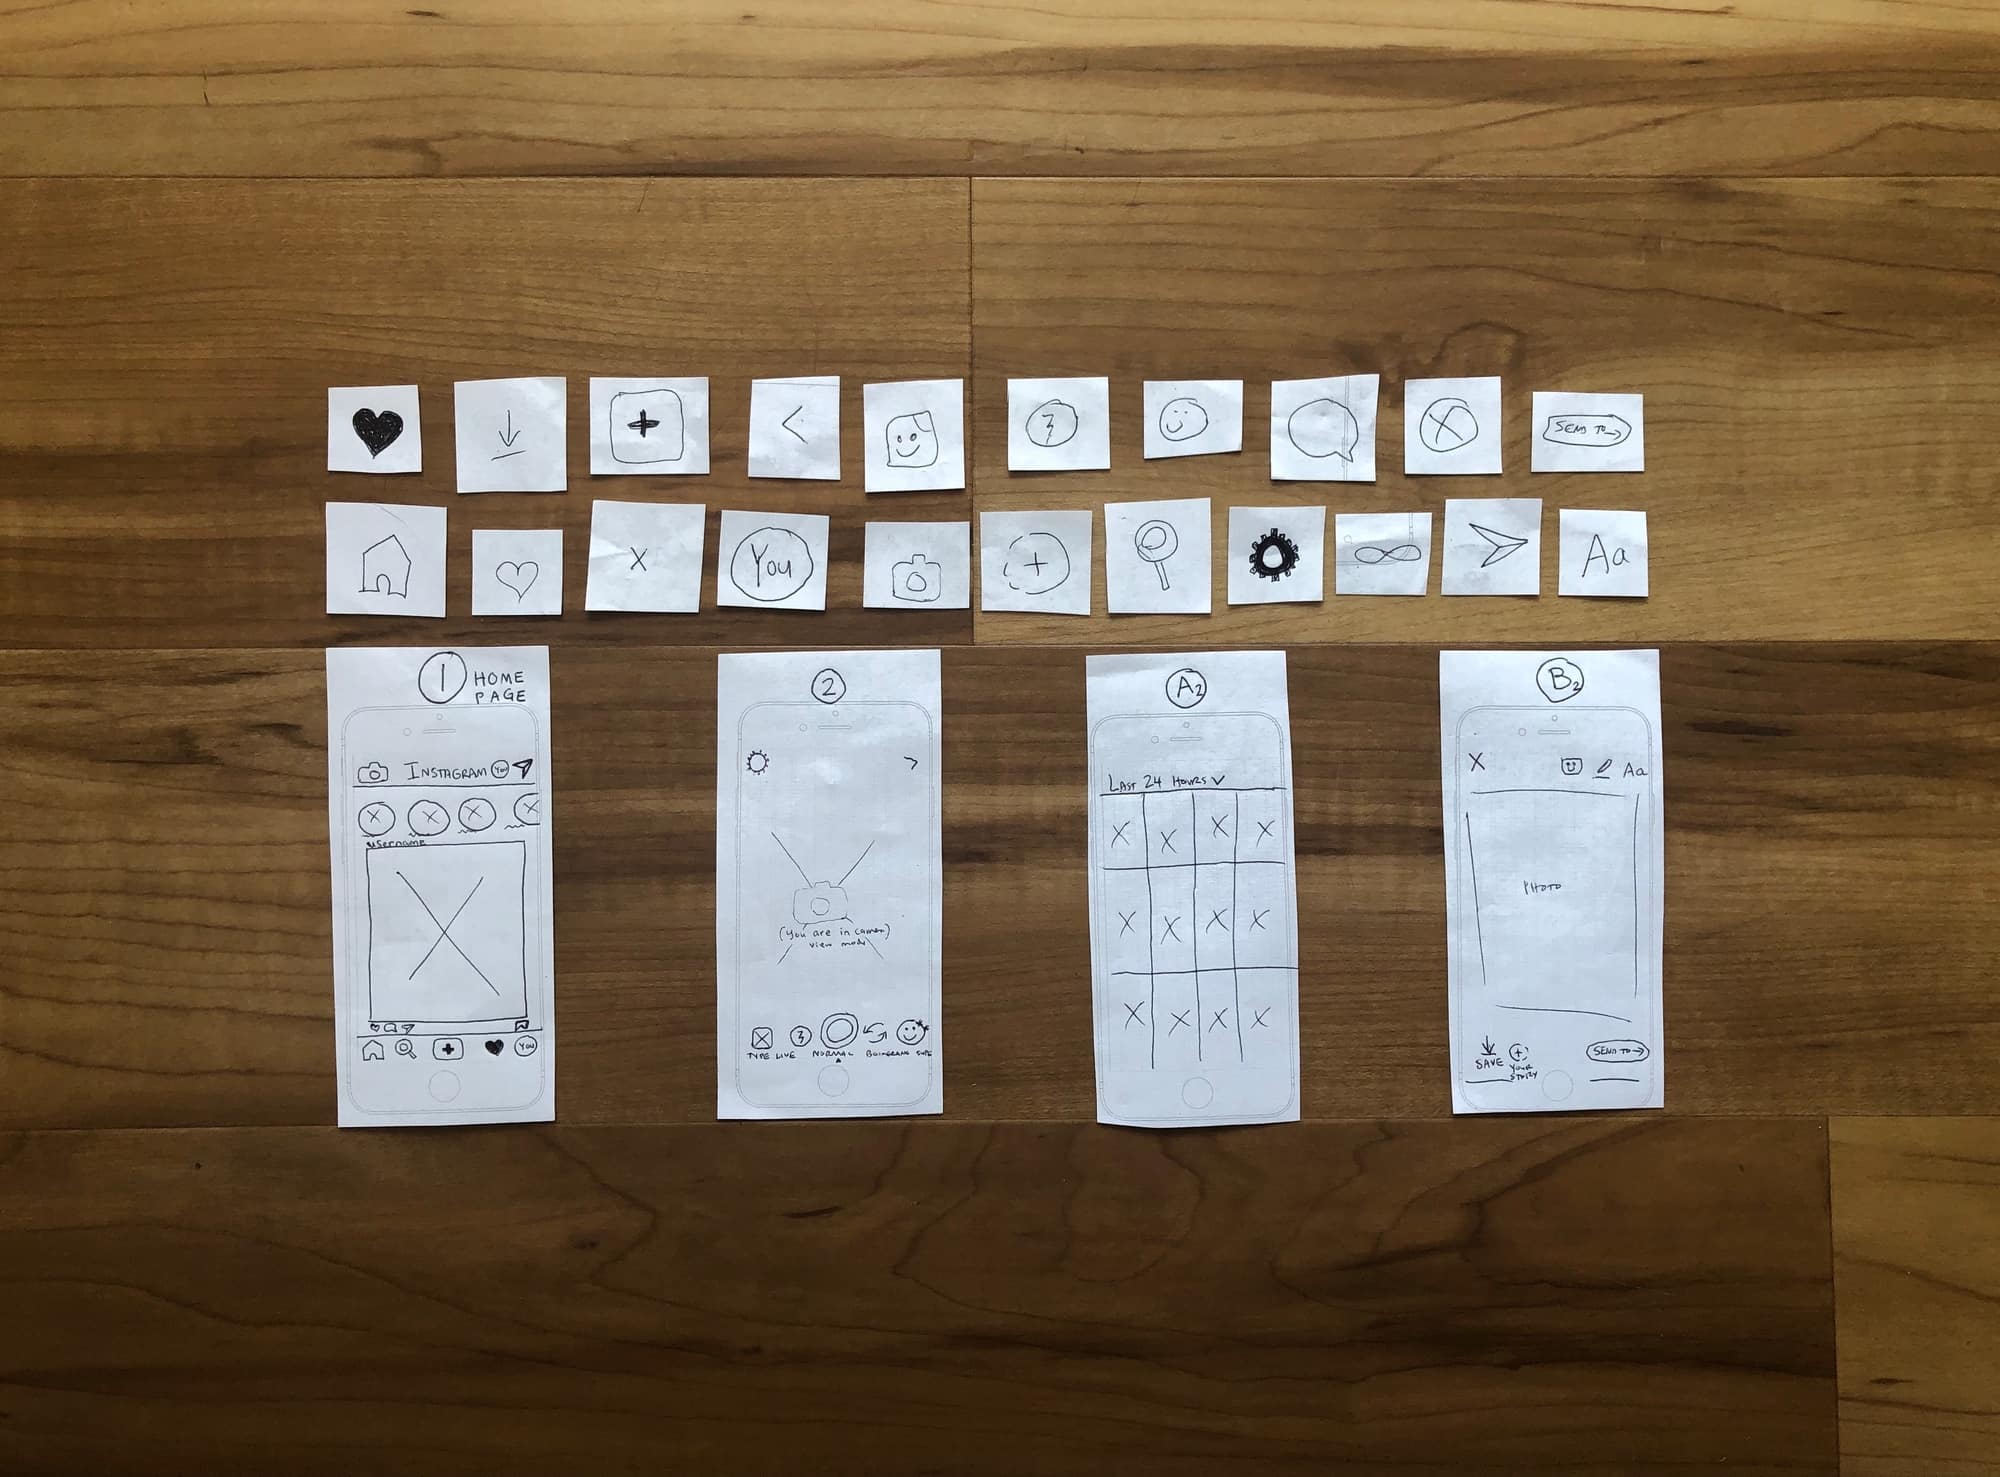 SEND TO→
You
Aa
1 HOME
PAGE
INSTAGRAM YOU
username
YOU
2
(You are in camera)
view mode
TYPE LIVE NORMAL BOOMERANG
A2
LAST 24 HOURS
B2
Aa
PHOTO
SAVE
YOUR
STORY
SEND TO→